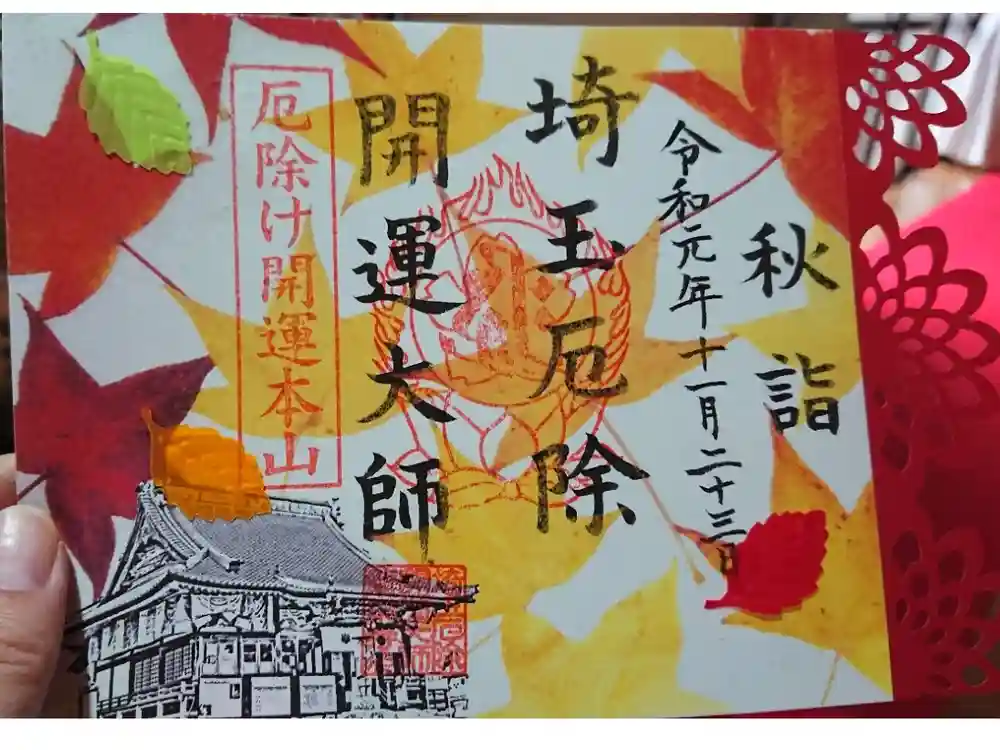 秋詣
令和元年十一月二十三日
埼玉厄除
開運大師
厄除け開運本山